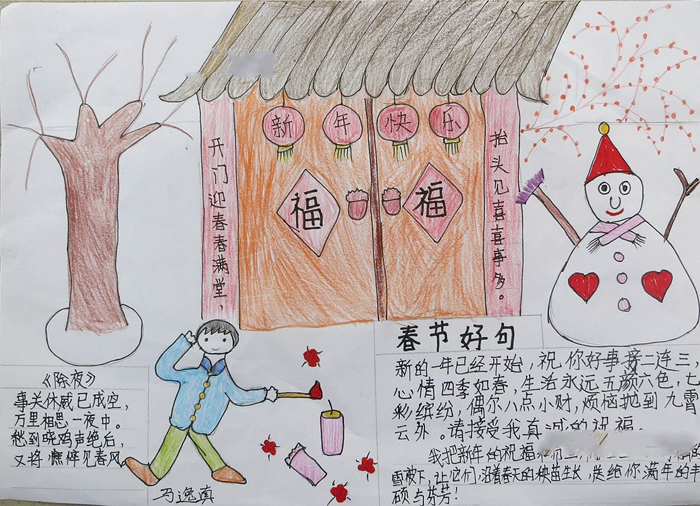 新年快乐
开门迎春春满堂，
抬头见喜喜事多。
福
福
春节好句
新的一年已经开始，祝你好事接二连三，
心情四季如春，生活永远五颜六色，七
彩缤纷，偶尔八点小财，烦恼抛到九霄
云外。请接受我真诚的祝福。
我把新年的祝福和
雪被下，让它们，沿着春天的秧苗生长，送给你满年的丰
硕与芬芳！
《除夜》
事关休戚已成空，
万里相思一夜中。
愁到晓鸡声绝后，
又将憔悴见春风。
马逸真